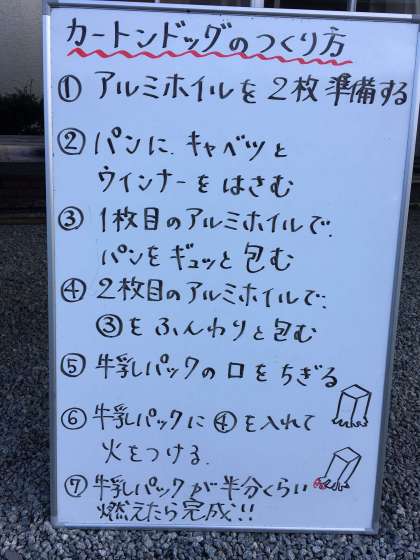 カートンドッグのつくり方
① アルミホイルを2枚準備する
② パンに、キャベツと
ウインナーをはさむ
③ 1枚目のアルミホイルで、
パンをギュッと包む
④ 2枚目のアルミホイルで、
③をふんわりと包む
⑤ 牛乳パックの口をちぎる
⑥ 牛乳パックに④を入れて
火をつける。
⑦ 牛乳パックが半分くらい
燃えたら完成!!